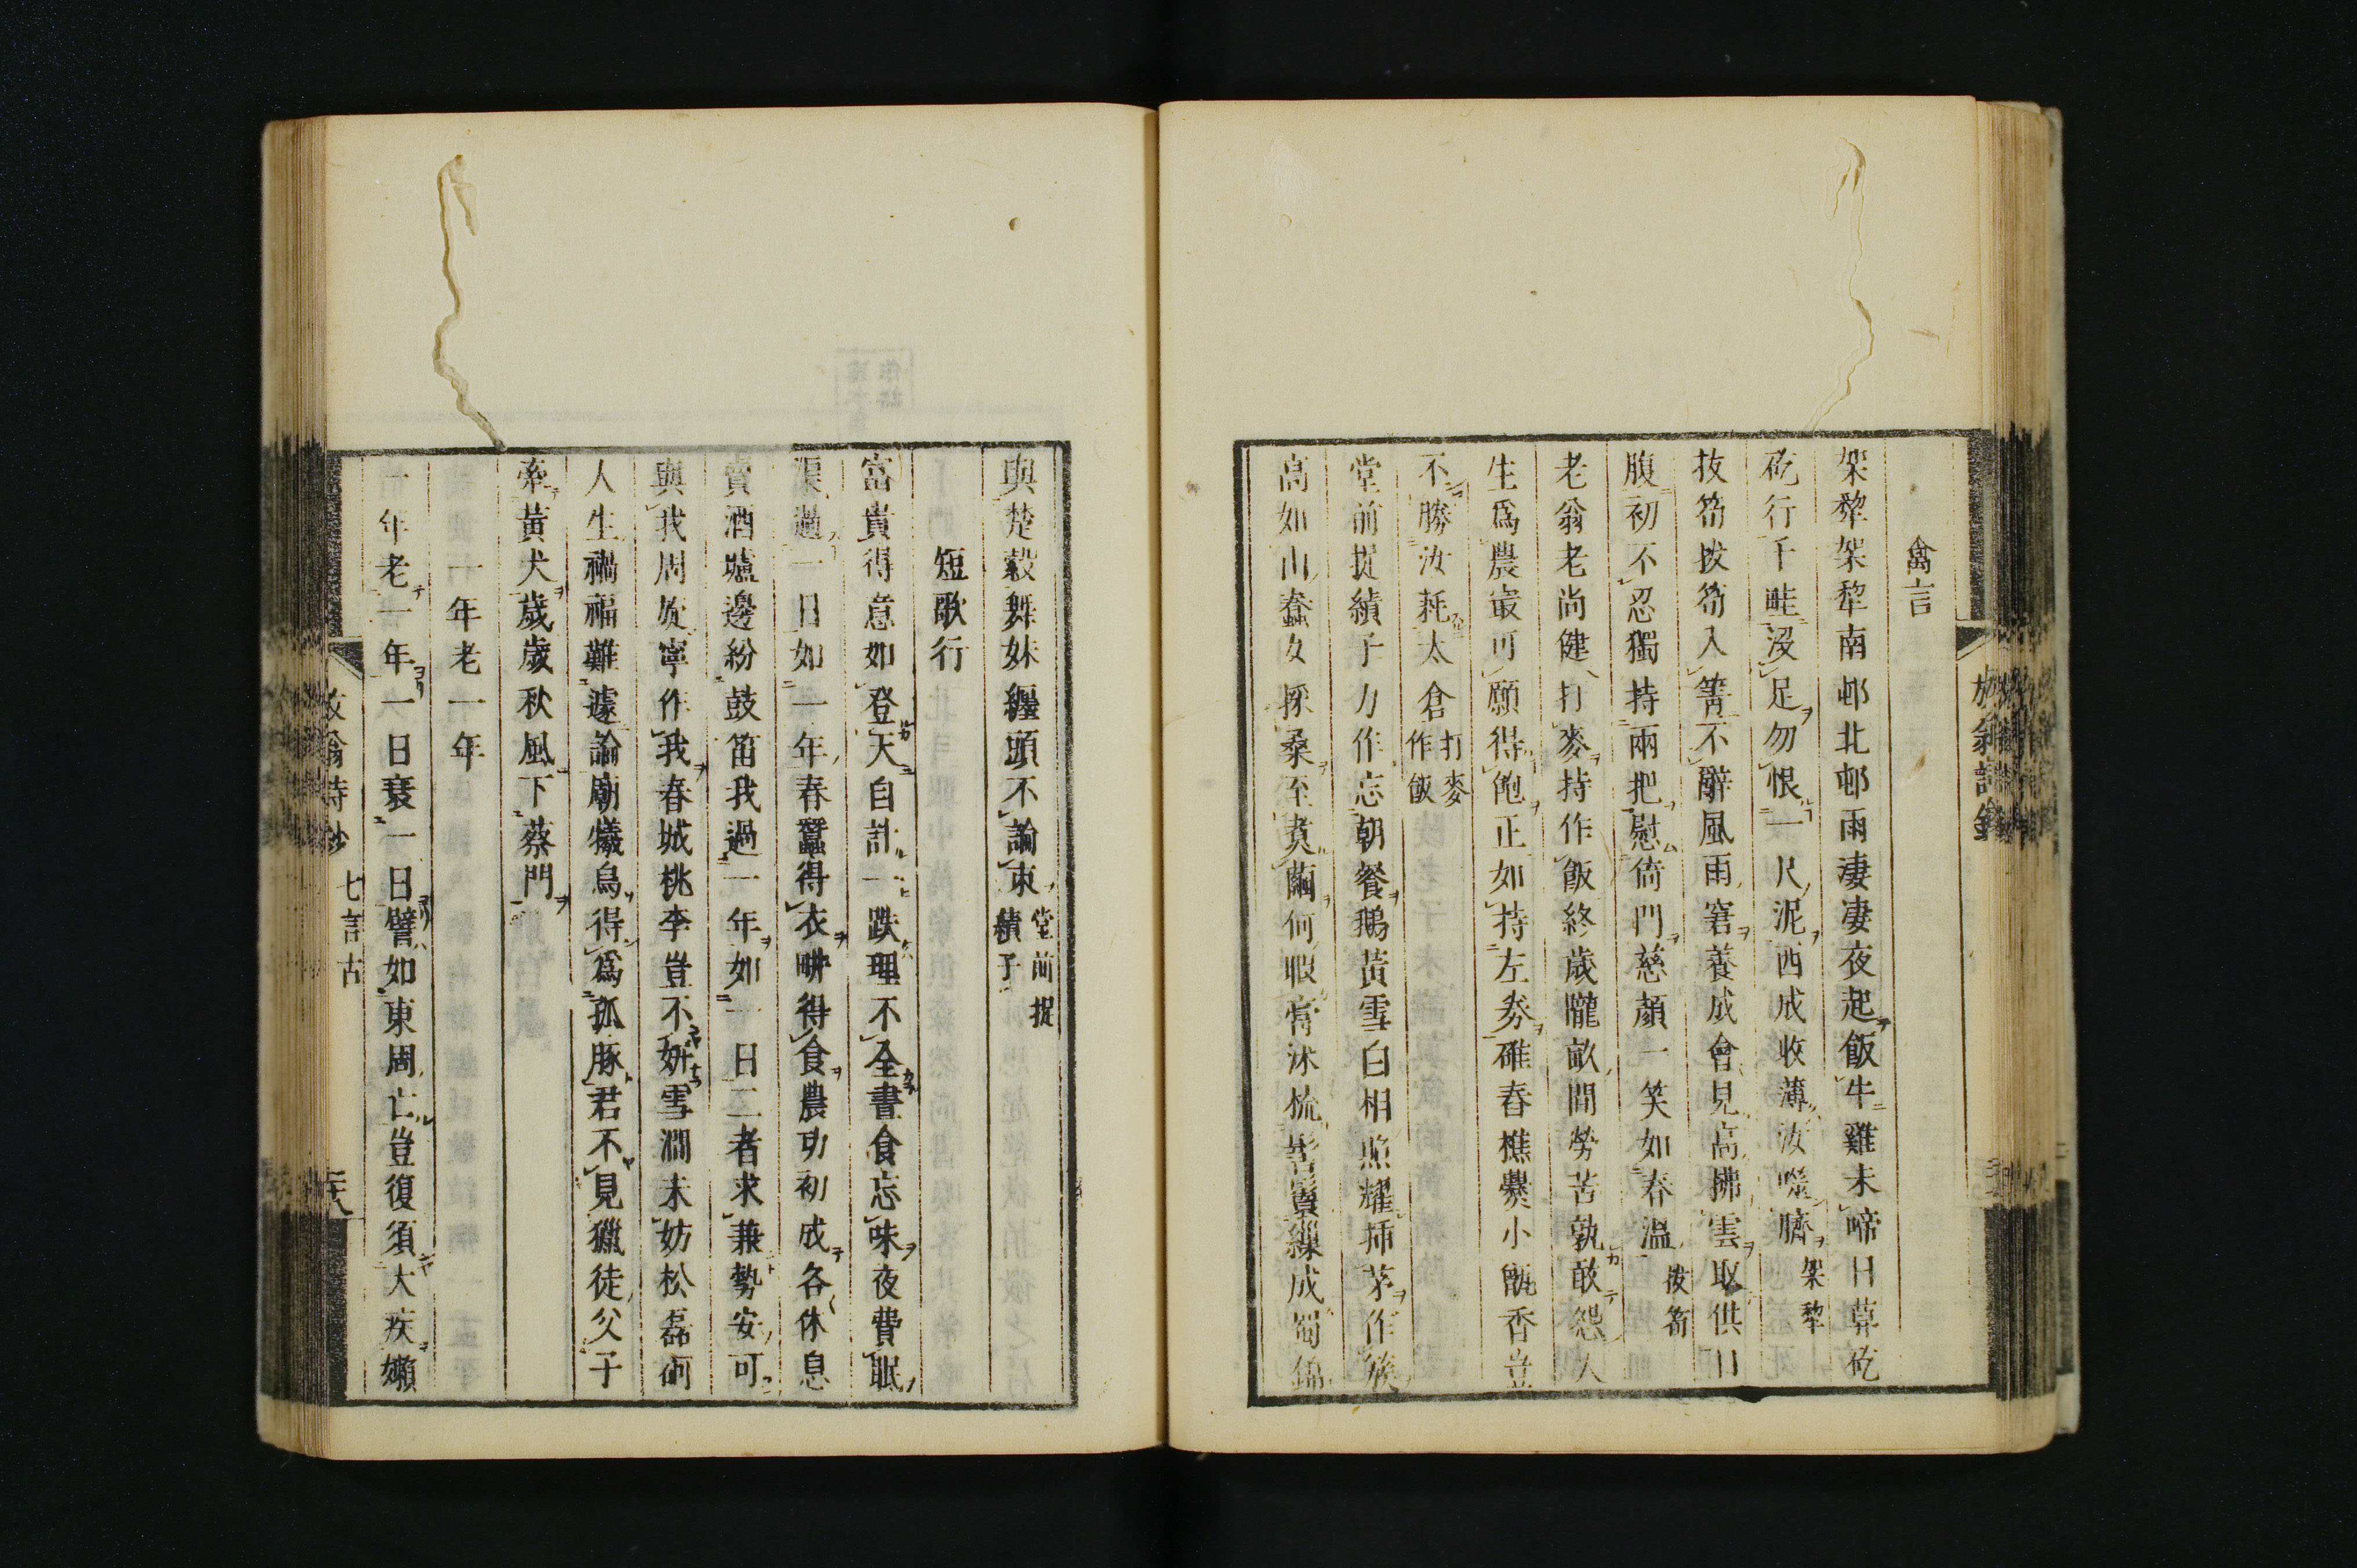 禽言
架犂架犂南邨北邨雨淒淒夜起飯牛雞未啼日莫矻
矻行千畦沒足勿恨一尺泥西成收薄汝噬臍架犂
拔筍拔筍入箐不辭風雨窘養成會見高拂雲取供口
腹初不忍獨持兩把慰倚門慈顏一笑如春溫拔筍
老翁老尚健打麥持作飯終歲隴畝間勞苦孰敢怨人
生爲農最可願得飽正如持左券碓舂樵爨小甑香豈
不勝汝耗太倉打麥作飯
堂前捉績子力作忘朝餐鵝黃雪白相照耀插茅作簇
高如山蠶女採桑至煮繭何暇膏沐梳髻鬟繰成蜀錦
與楚縠舞妹纏頭不論束堂前捉績子
短歌行
富貴得意如登天自計一跌理不全書食忘味夜費眠
渠過一日如一年春蠶得衣耕得食農功初成各休息
賣酒壚邊紛鼓笛我過一年如一日二者求兼勢安可
與我周旋寧作我春城桃李豈不妍雪澗未妨松磊砢
人生禍福難遽論廟犧烏得爲孤豚君不見獵徒父子
牽黃犬歲歲秋風下蔡門
一年老一年
一年老一年一日衰一日譬如東周亡豈復須大疾嬾
放翁詩鈔 七言古 二十八